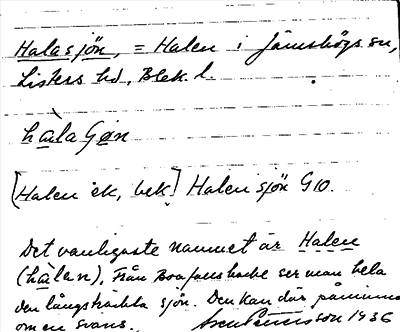 Halasjön, = Halen i Jämshögs sn,
Listers hd, Blek. l.
hàla Gøn
[Halen ek, bek] Halen sjön G10.
Det vanligaste namnet är Halen
(hàlen). Från Boafallsbacke ser man hela
den långsträckta sjön. Den kan där påminna
om en svans. Pettersson 1936